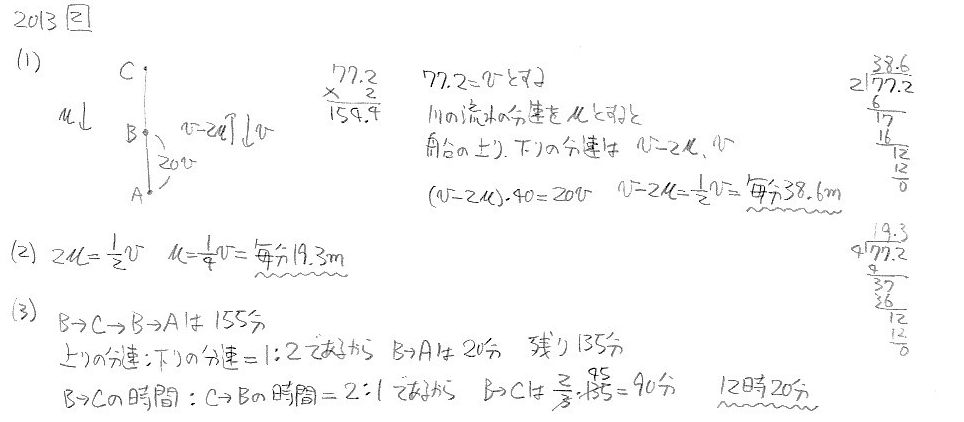 2013 2
(1)
C
u↓
B
v-2u↑↓v
20v
A
77.2
× 2
154.4
77.2=vとする
川の流れの分速をuとすると
船の上り、下りの分速は v-2u、v
(v-2u)・40=20v v-2u=1/2v=毎分38.6m
38.6
2)77.2
6
17
16
12
12
0
(2) 2u=1/2v u=1/4v=毎分19.3m
19.3
4)77.2
4
37
36
12
12
0
(3) B→C→B→Aは155分
上りの分速:下りの分速=1:2であるから B→Aは20分 残り135分
B→Cの時間:C→Bの時間=2:1であるから B→Cは2/3・135=90分 12時20分
45